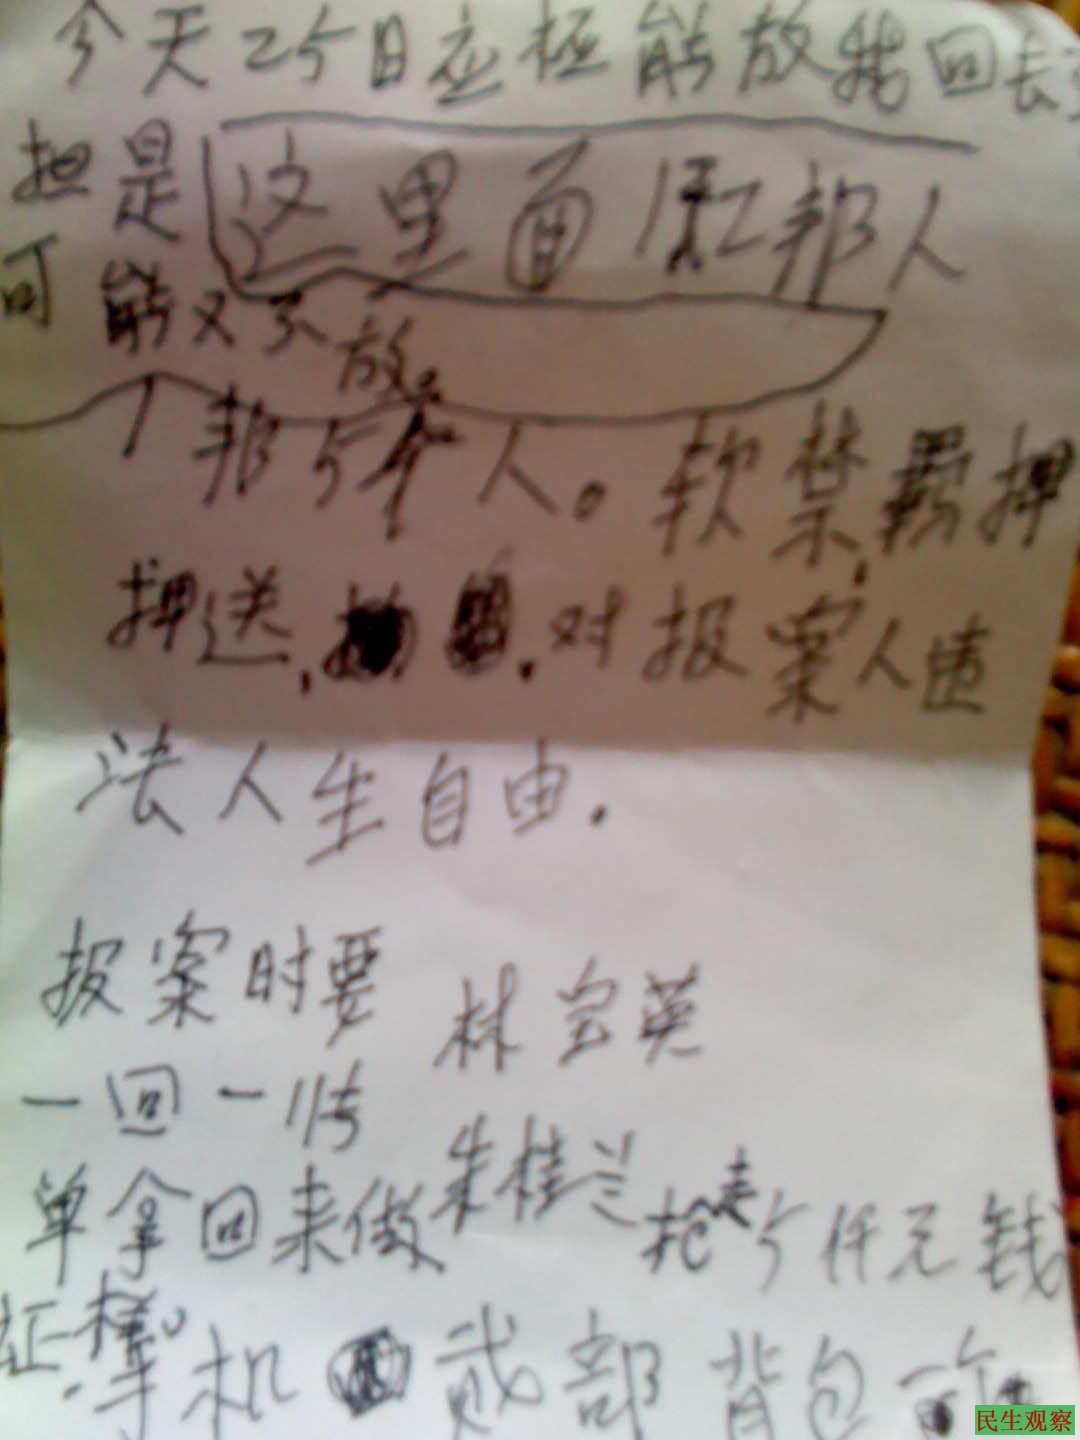 今天25日应极能放我回长
担是这里面缸邦人
可能又不放。
邦5个人。软禁,羁押
押送,对报案人违
法人生自由.
报案时要
一回一传
单拿回来做
证据。
林宝英
朱桂兰抢走5仟元钱
手机贰部背包一个
民生观察